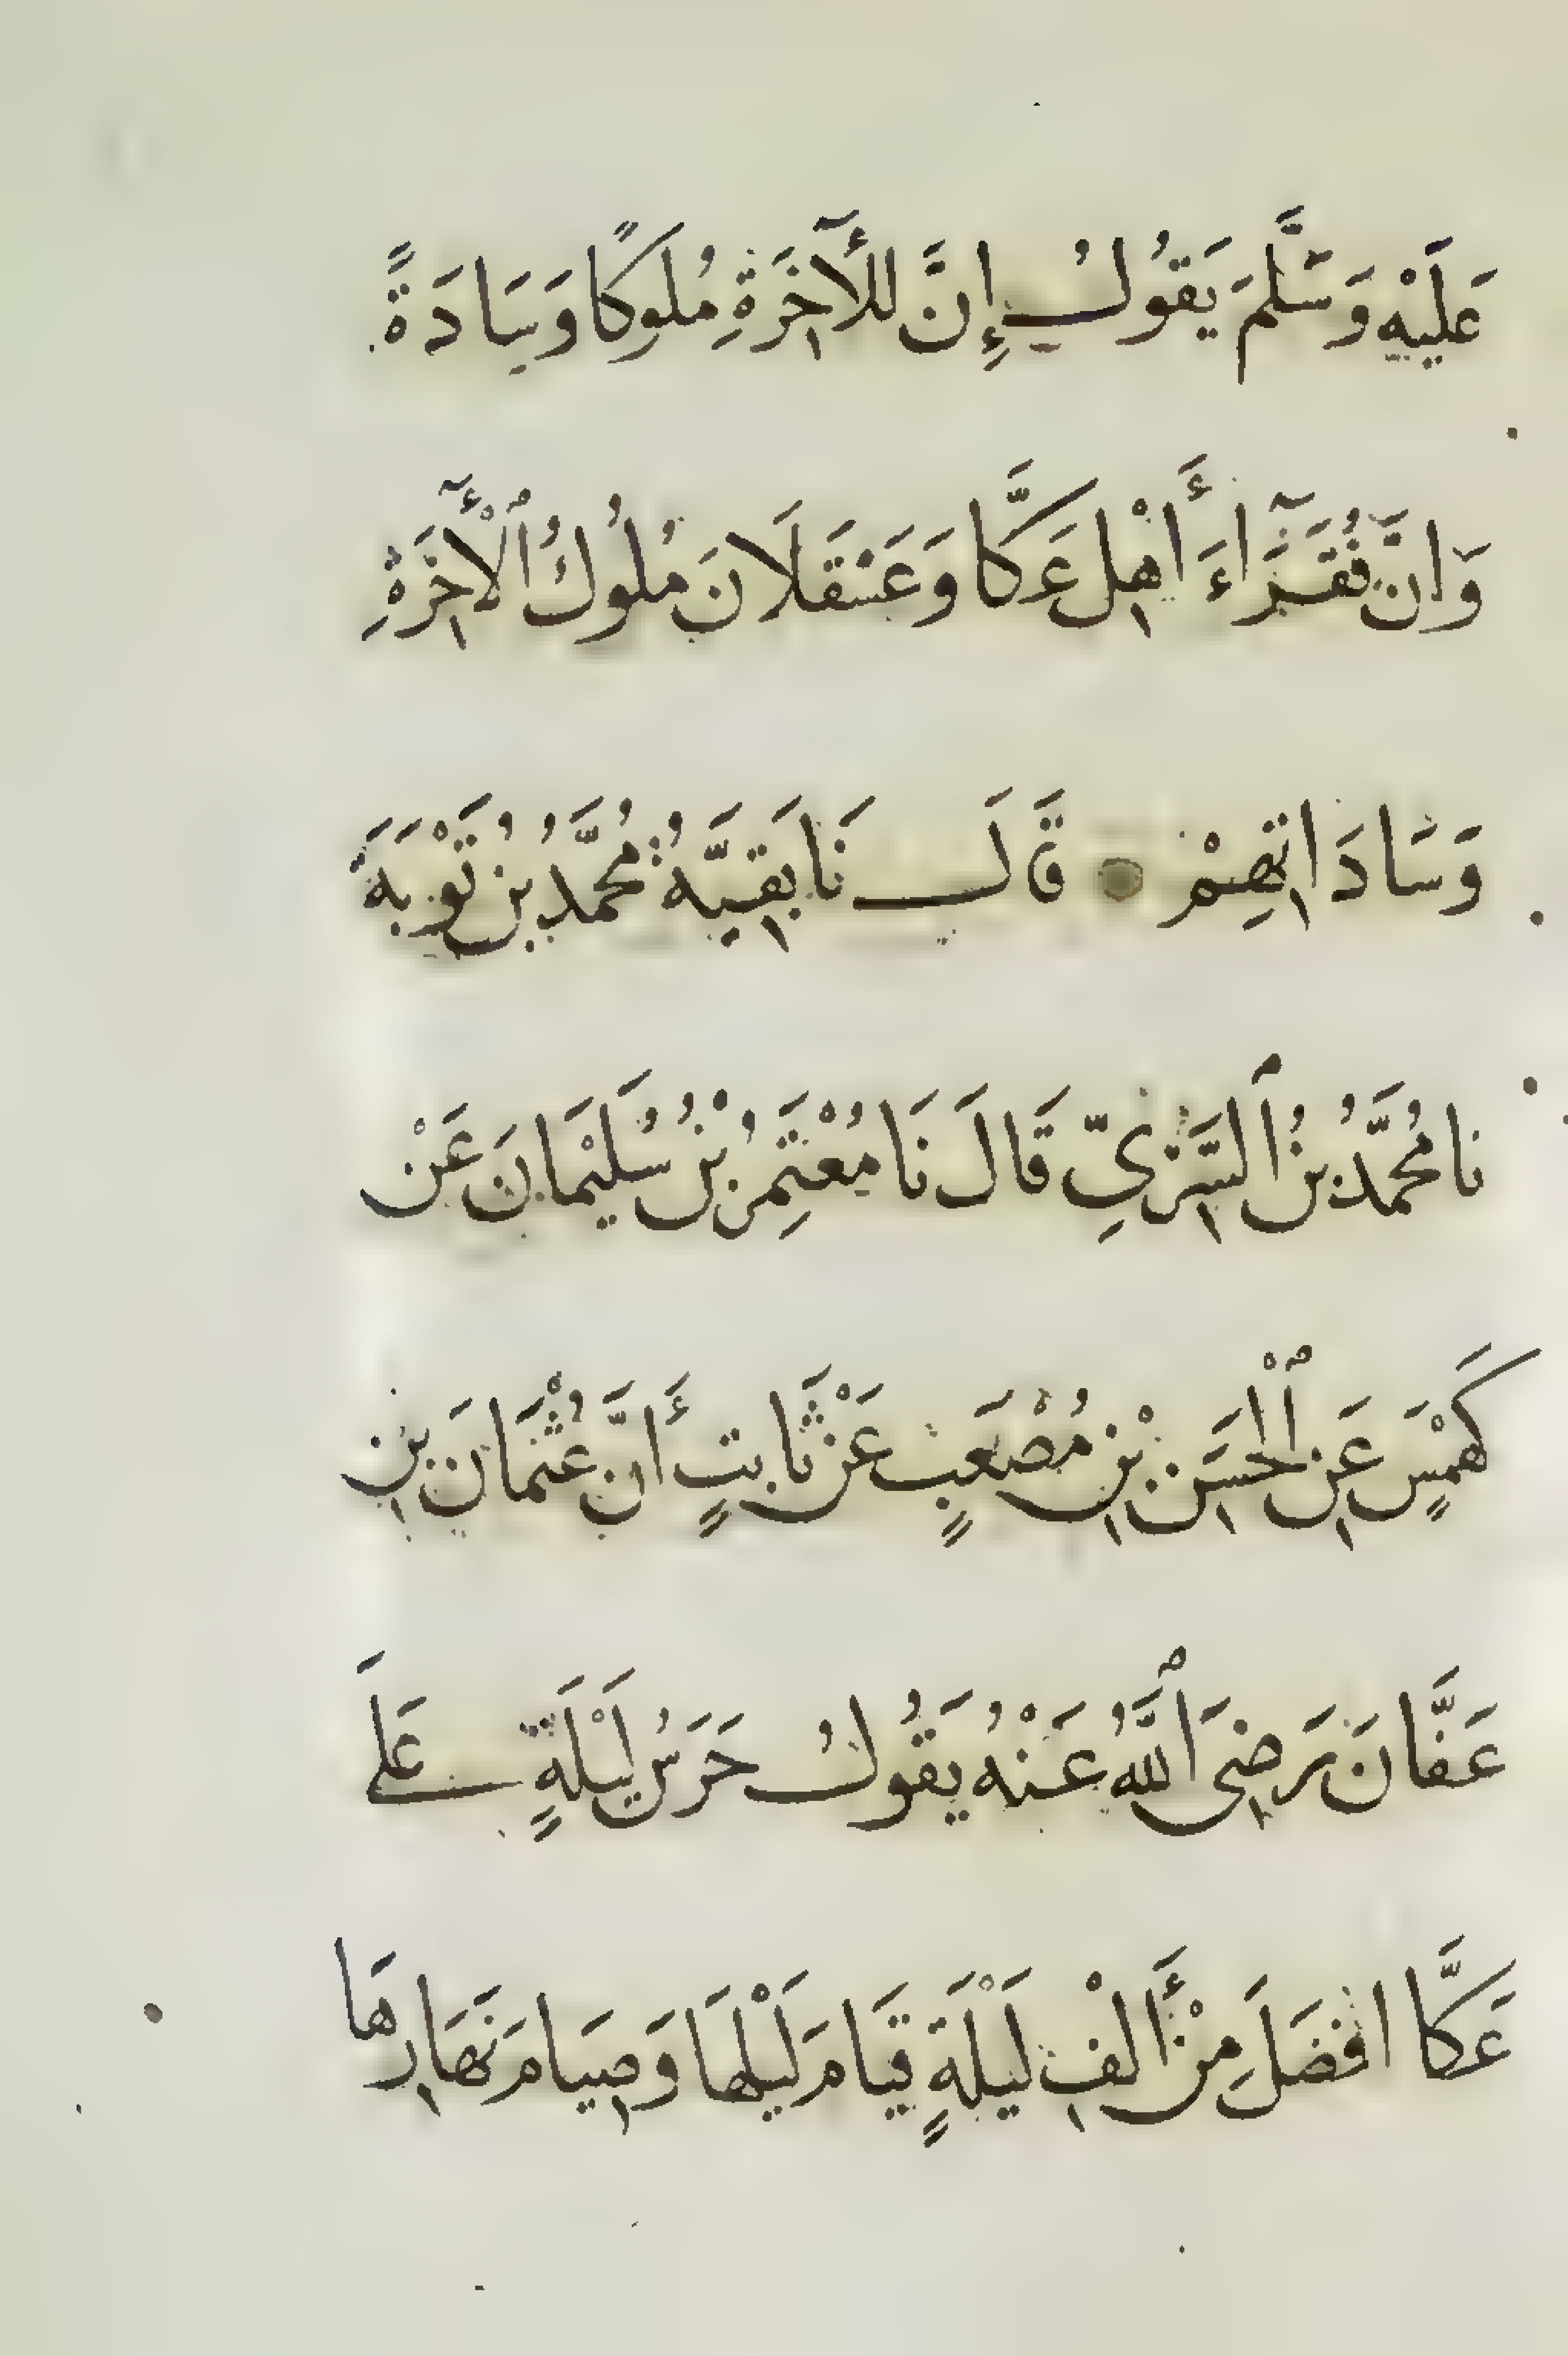 عَلَيْهِ وَسَلَّمَ يَقُولُ إِنَّ للأٓخِرَةِ مُلُوكًا وَسَادَةً
وَانَّ فُقَرَآءَ أَهْلِ عَكَّا وَعَسْقَلَانَ مُلُوكُ ٱلْأٓخِرَةِ
وَسَادَاتِهِمْ قَالَ نَا بَقِيَّةُ مُحَمَّدُ بنُ تَوْبَةَ
نا مُحَمَّدُ بنُ ٱلسَّرِيِّ قَالَ نَا مُعْتَمِرُ بْنُ سُلَيْمَانَ عَنْ
كَهْمَسٍ عَنِ ٱلْحَسَنِ بْنِ مُصْعَبٍ عَنْ ثَابتٍ أَنَّ عُثْمَانَ بنِ
عَفَّانَ رَضِىَ ٱللَّهُ عَنْهُ يَقُولُ حَرَسُ لَيْلَةٍ عَلَى
عَكَّا افْضَلَ مِنْ أَلْفِ لَيْلَةٍ قِيَامَ لَيْلَهَا وَصِيَامَ نَهَارِهَا